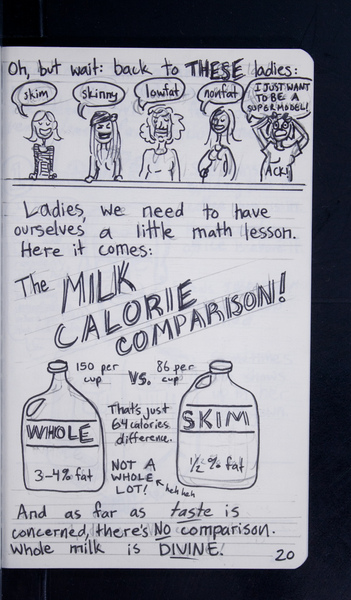 Oh, but wait: back to THESE ladies:
skim
skinny
lowfat
nonfat
I JUST WANT
TO BE A
SUPERMODEL!
ACK!
Ladies, we need to have
ourselves a little math lesson.
Here it comes:
The MILK
CALORIE
COMPARISON!
150 per
cup
vs.
86 per
cup
WHOLE
3-4% fat
That's just
64 calories
difference.
NOT A
WHOLE
LOT!
heh heh
SKIM
1/2 % fat
And as far as taste is
concerned, there's NO comparison.
Whole milk is DIVINE!
20